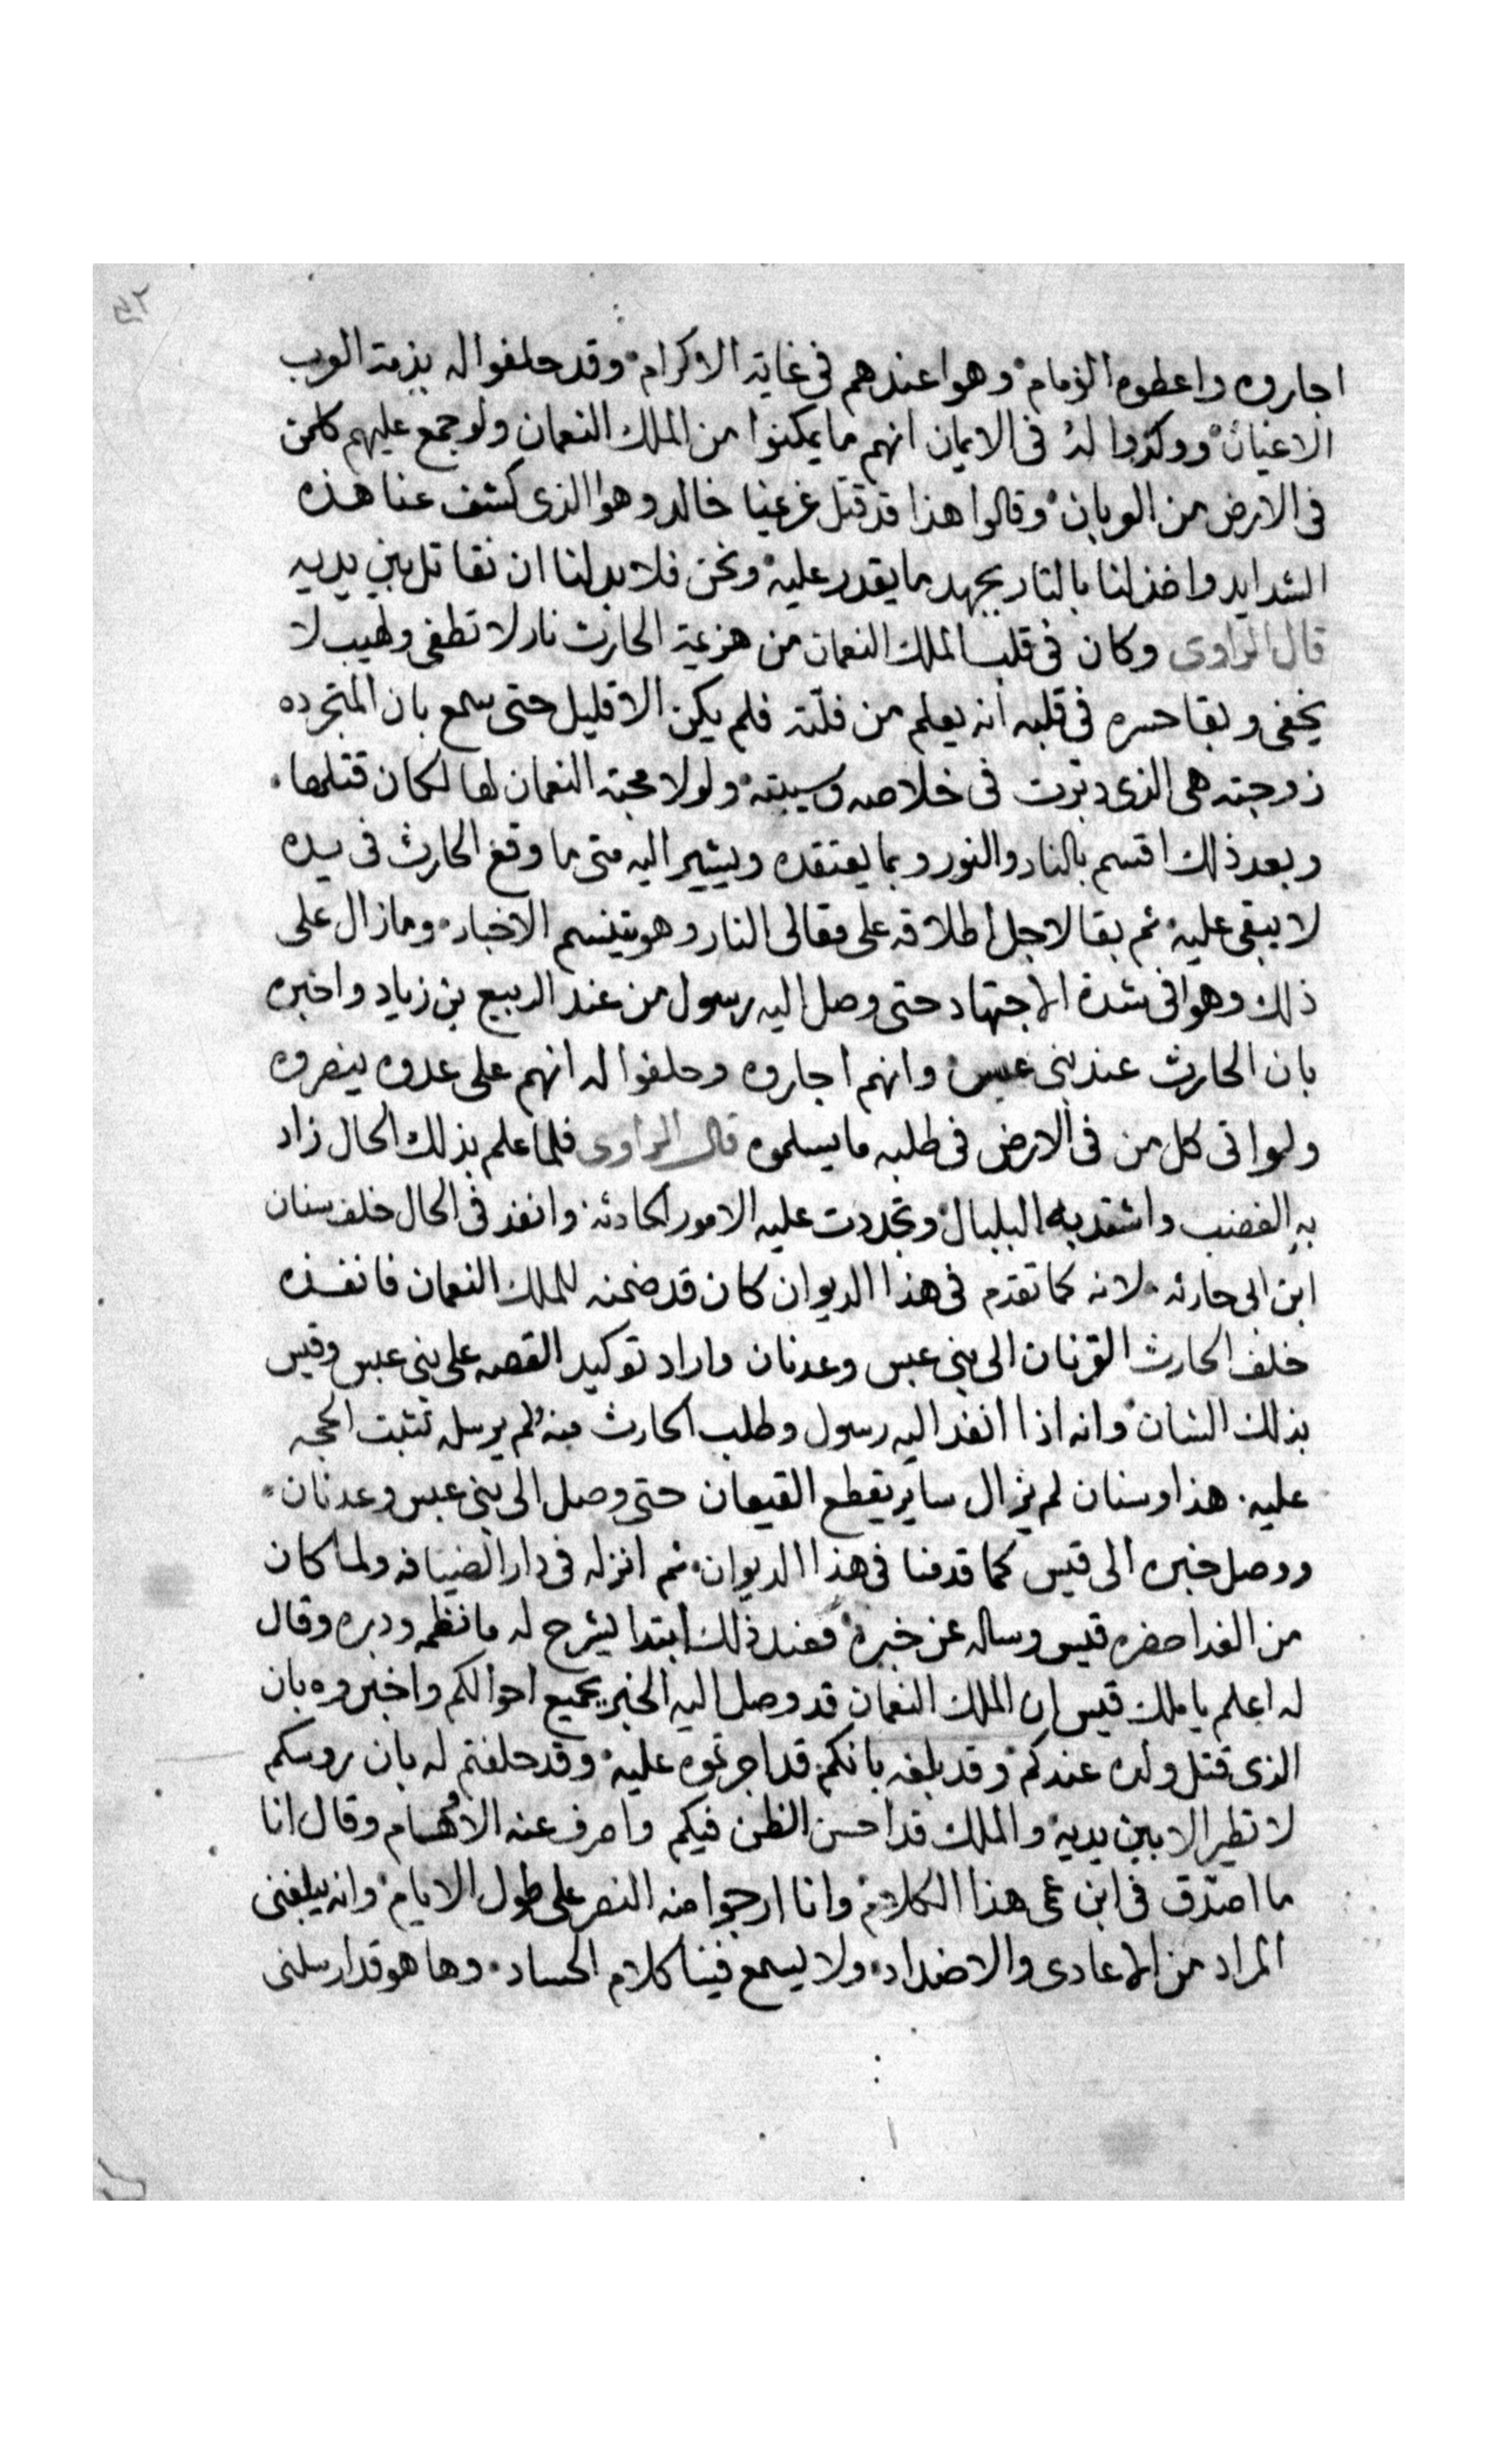 اجاروه واعطوه الزمام وهوا عندهم فى غاية الاكرام وقد حلفوا له بذمة العرب
الاعيان ووكدوا له فى الايمان انهم ما يمكنوا من الملك النعمان ولو جمع عليهم كلمن
فى الارض من العربان وقالوا هذا قد قتل غرعنا خالد وهوا الذى كشف عنا هذه
الشدايد واخذ لنا بالثار بجهد ما يقدر عليه ونحن فلا بد لنا ان نقاتل بين يديه
قال الراوى وكان فى قلب الملك النعمان من هزيمة الحارث نار لا تطفى ولهيب لا
يخفى وبقا حسره فى قلبه انه يعلم من فلته فلم يكن الا قليل حتى سمع بان المتجرده
زوجته هى الذى دبرت فى خلاصه وسيبته ولولا محبة النعمان لها لكان قتلها
وبعد ذلك اقسم بالنار والنور وبما يعتقده ويشير اليه متى ما وقع الحارث فى يده
لا يبقى عليه ثم بقا لاجل اطلاقه على مقالى النار وهو يتنسم الاخبار ومازال على
ذلك وهوا فى شدة الاجتهاد حتى وصل اليه رسول من عند الربيع بن زياد واخبره
بان الحارث عند بنى عبس وانهم اجاروه وحلفوا له انهم على عدوه ينصروه
ولو اتى كل من فى الارض فى طلبه ما يسلموه قال الراوى فلما علم بذلك الحال زاد
به الغضب واشتد به البلبال وتجددت عليه الامور الحادثه وانفذ فى الحال خلف سنان
ابن ابى حارثه لانه كما تقدم فى هذا الديوان كان قد ضمنه للملك النعمان فانفذه
خلف الحارث القرنان الى بنى عبس وعدنان واراد توكيد القصه على بنى عبس وقيس
بذلك الشان وانه اذا انفذ اليه رسول وطلب الحارث منه ولم يرسله تثبت الحجه
عليه هذا وسنان لم يزال ساير يقطع القيعان حتى وصل الى بنى عبس وعدنان
ووصل خبره الى قيس كما قدمنا فى هذا الديوان ثم انزله فى دار الضيافه ولما كان
من الغد احضره قيس وساله عن خبره فعند ذلك ابتدا يشرح له ما نظمه ودبره وقال
له اعلم يا ملك قيس ان الملك النعمان قد وصل اليه الخبر بجميع احوالكم واخبروه بان
الذى قتل ولده عندكم وقد بلغه بانكم قد اجرتموه عليه وقد حلفتم له بان روسكم
لا تطير الا بين يديه والملك قد احسن الظن فيكم واصرف عنه الاهتمام وقال انا
ما اصدق فى ابن عمى هذا الكلام وانا ارجوا منه النصر على طول الايام وانه يبلغنى
المراد من الاعادى والاضداد ولا يسمع فينا كلام الحساد وها هو قد ارسلنى